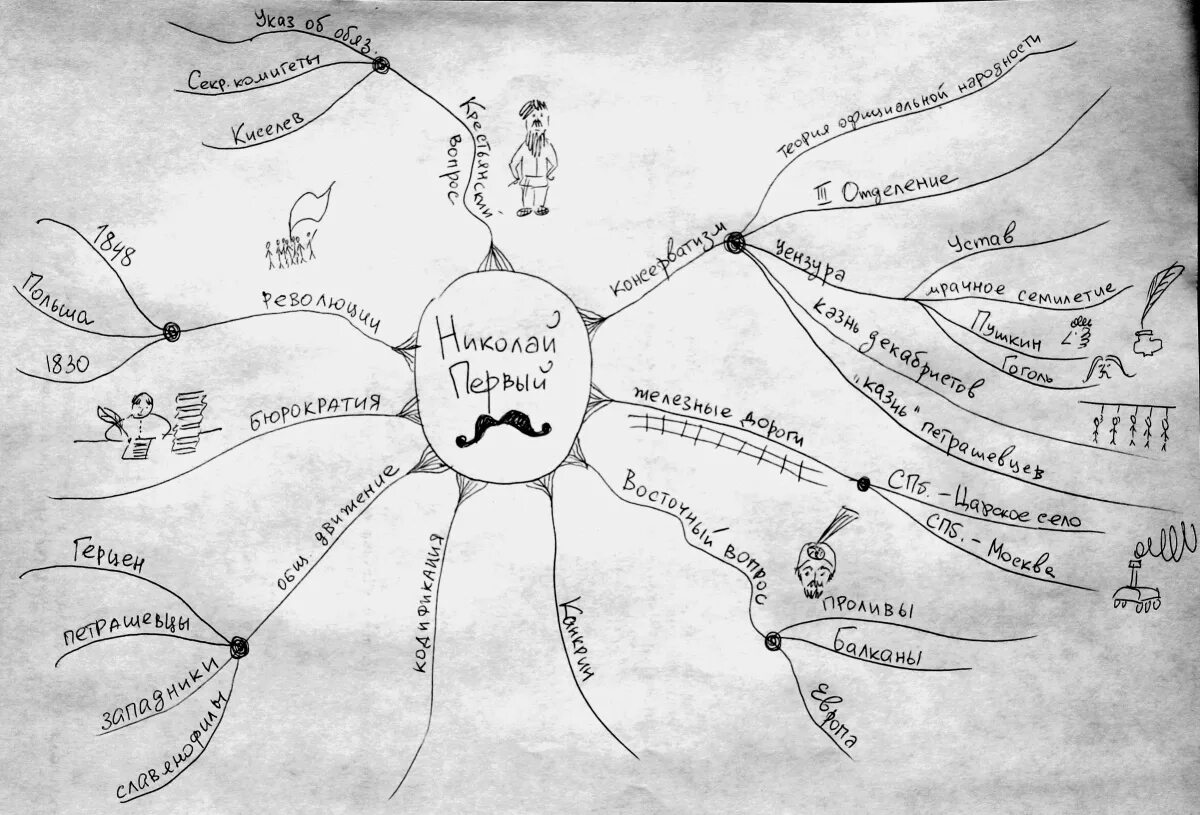 Николай
Первый
Крестьянский
вопрос
Указ об обяз.
Секр. комитеты
Киселев
консерватизм
теория официальной народности
III Отделение
цензура
Устав
мрачное семилетие
Пушкин
Гоголь
казнь декабристов
"казнь" петрашевцев
железные дороги
СПб. - Царское село
СПб. - Москва
Восточный вопрос
проливы
Балканы
Европа
Канкрин
кодификация
общ. движение
Герцен
петрашевцы
западники
славянофилы
бюрократия
революции
1848
Польша
1830